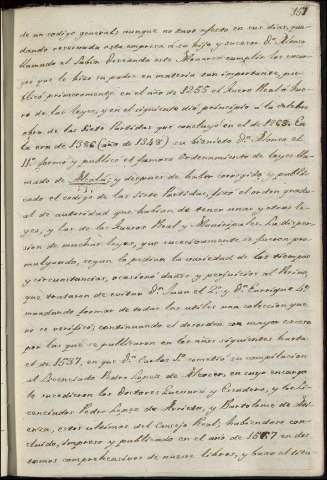 151
de un codigo general; aunque no tuvo efecto en sus dias, que-
dando reservada esta empresa á su hijo y sucesor Dn. Alonso
llamado el Sabio. Deseando este Monarca cumplir los encar-
gos que le hizo su padre en materia tan importante, pu-
blicó primeramente en el año de 1255 el Fuero Real ó Fue-
ro de las leyes, y en el siguiente dió principio á la celebre
obra de las Siete Partidas que concluyó en el de 1263. En
la era de 1386 (año de 1348) su biznieto Dn. Alonso el
11º formó y publicó el famoso Ordenamiento de leyes lla-
mado de Alcalá; y despues de haber corregido, y publi-
cado el codigo de las Siete Partidas, fixó el orden gradu-
al de autoridad que habian de tener unas y otras le-
yes, y las de los Fueros Real y Municipales. La disper-
sion de muchas leyes, que sucesivamente se fueron pro-
mulgando, segun lo pedian la variedad de los tiempos
y circunstancias, ocasionó daños y perjuicios al Reino,
que trataron de evitar Dn. Juan el 2º y Dn. Enrique 4º
mandando formar de todas las utiles una coleccion que
no se verificó; continuando el desorden con mayor exceso
por las que se publicaron en los años siguientes hasta
el de 1537, en que Dn. Carlos 1º cometió su compilacion
al Licenciado Pedro Lopez de Alcocer, en cuyo encargo
le sucedieron los Doctores Guevara y Escudero, y los Li-
cenciados Pedro Lopez de Arrieta, y Bartolome de Ati-
enza, estos ultimos del Consejo Real; habiendose con-
cluido, impreso y publicado en el año de 1567 en dos
tomos comprehensivos de nueve libros, y baxo el titu